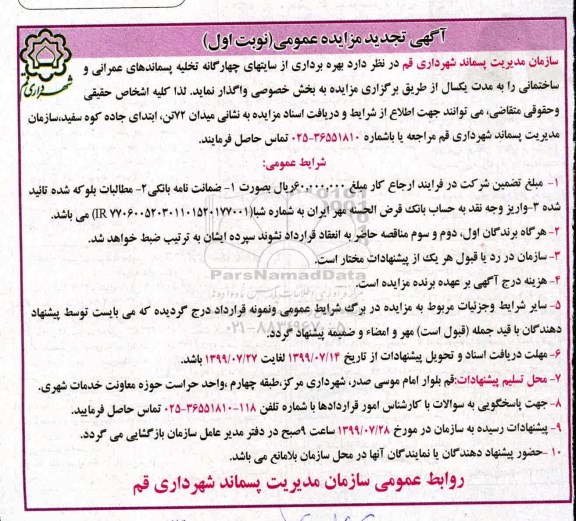 آگهی تجدید مزایده عمومی(نوبت اول)
شهرداری قم
سازمان مدیریت پسماند شهرداری قم در نظر دارد بهره برداری از سایتهای چهارگانه تخلیه پسماندهای عمرانی و
ساختمانی را به مدت یکسال از طریق برگزاری مزایده به بخش خصوصی واگذار نماید. لذا کلیه اشخاص حقیقی
وحقوقی متقاضی، می توانند جهت اطلاع از شرایط و دریافت اسناد مزایده به نشانی میدان ۷۲تن، ابتدای جاده کوه سفید،سازمان
مدیریت پسماند شهرداری قم مراجعه یا باشماره ۳۶۵۵۱۸۱۰-۰۲۵ تماس حاصل فرمایند.
شرایط عمومی:
۱- مبلغ تضمین شرکت در فرایند ارجاع کار مبلغ ۶۰،۰۰۰،۰۰۰ریال بصورت ۱- ضمانت نامه بانکی۲- مطالبات بلوکه شده تائید
شده ۳-واریز وجه نقد به حساب بانک قرض الحسنه مهر ایران به شماره شبا(IR ۷۷۰۶۰۰۵۲۰۳۰۱۱۰۱۵۲۰۱۷۷۰۰۱) می باشد.
۲- هرگاه برندگان اول، دوم و سوم مناقصه حاضر به انعقاد قرارداد نشوند سپرده ایشان به ترتیب ضبط خواهد شد.
۳- سازمان در رد یا قبول هر یک از پیشنهادات مختار است.
ParsNamadData
۴- هزینه درج آگهی بر عهده برنده مزایده است.
۵- سایر شرایط وجزئیات مربوط به مزایده در برگ شرایط عمومی ونمونه قرارداد درج گردیده که می بایست توسط پیشنهاد
دهندگان با قید جمله (قبول است) مهر و امضاء و ضمیمه پیشنهاد گردد.
۶- مهلت دریافت اسناد و تحویل پیشنهادات از تاریخ ۱۳۹۹/۰۷/۱۴ لغایت ۱۳۹۹/۰۷/۲۷ باشد.
۷- محل تسلیم پیشنهادات:قم بلوار امام موسی صدر، شهرداری مرکز،طبقه چهارم ،واحد حراست حوزه معاونت خدمات شهری.
۸- جهت پاسخگویی به سوالات با کارشناس امور قراردادها با شماره تلفن ۱۱۸-۳۶۵۵۱۸۱۰-۰۲۵ تماس حاصل فرمایید.
۹- پیشنهادات رسیده به سازمان در مورخ ۱۳۹۹/۰۷/۲۸ ساعت ۹صبح در دفتر مدیر عامل سازمان بازگشایی می گردد.
۱۰-حضور پیشنهاد دهندگان یا نمایندگان آنها در محل سازمان بلامانع می باشد.
روابط عمومی سازمان مدیریت پسماند شهرداری قم